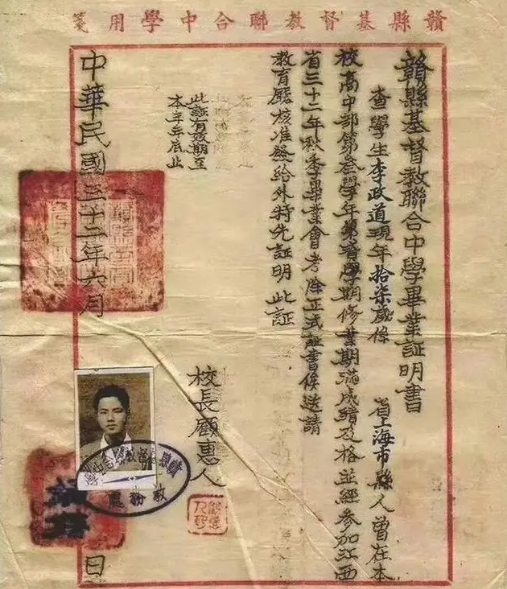 贛縣基督教聯合中學用箋
贛縣基督教聯合中學畢業証明書
查學生李政道現年拾柒歲係 省上海市縣人曾在本
校高中部第叁學年第貳學期修業期滿成績及格並經參加江西
省三十二年秋季畢業會考除正式証書俟送請
教育廳核准發給外特先証明 此証
此証有效期至
本年年底止
校長顧惠人
中華民國三十二年六月 日
教務處